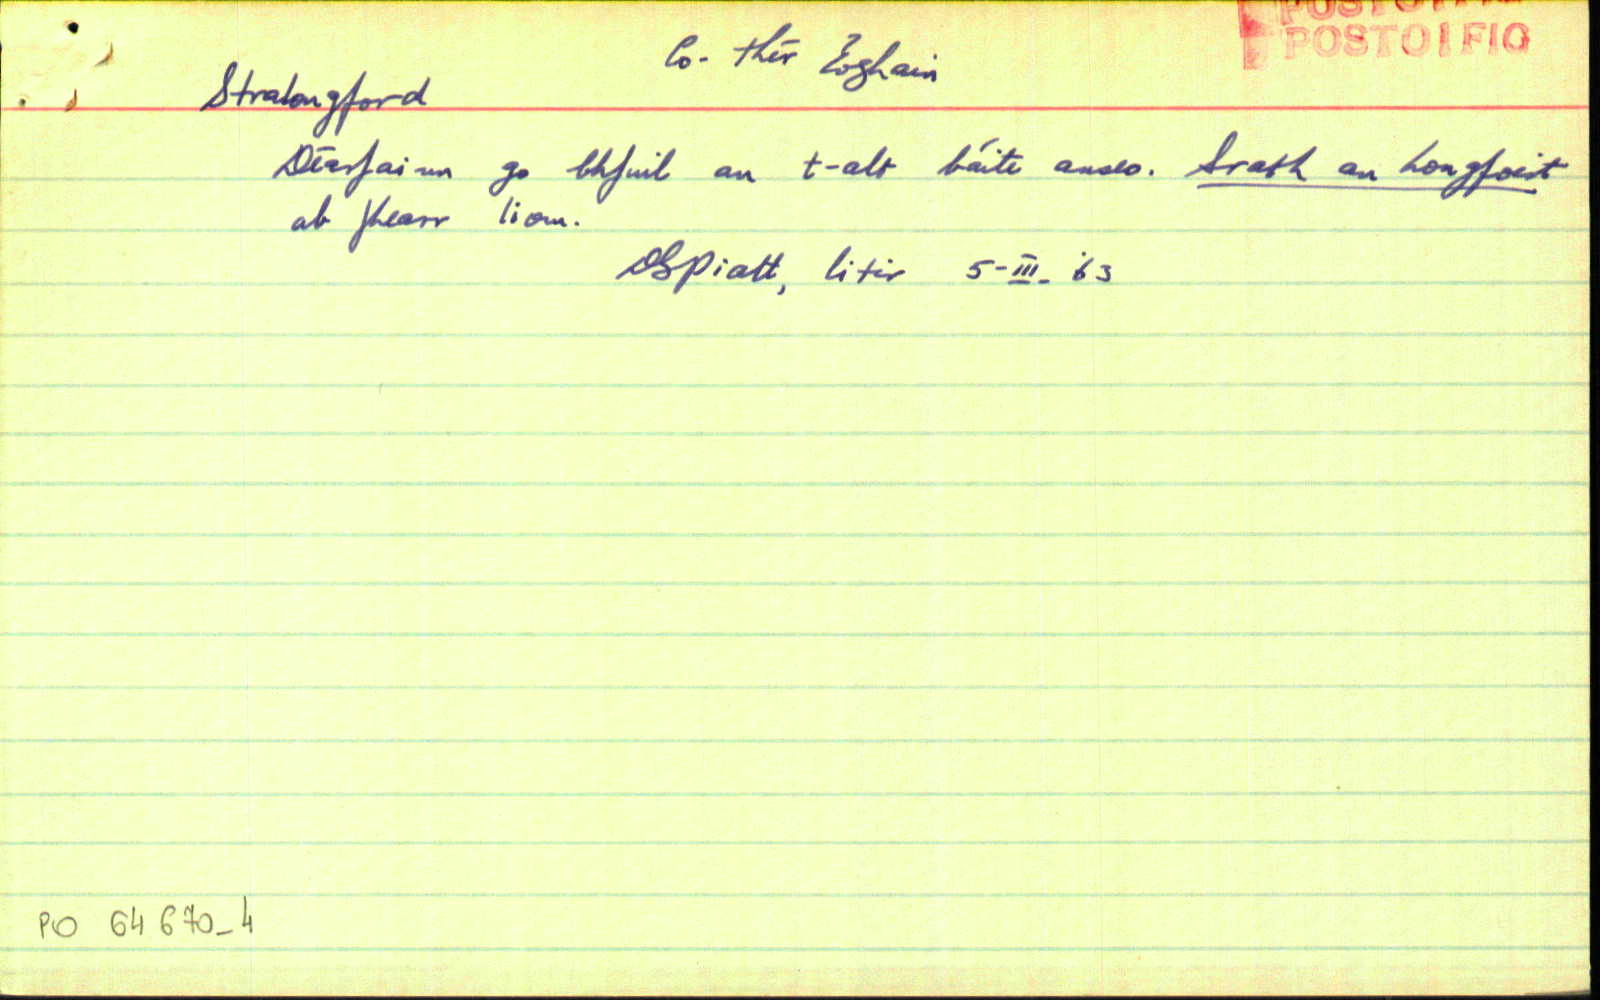 POSTOIFIG
POSTOIFIG
Co. Thír Eoghain
Stralongford
Déarfainn go bhfuil an t-alt báite anseo. Srath an Longfoirt
ab fhearr liom.
DSPiatt, litir 5-III-'63
PO 64670_4